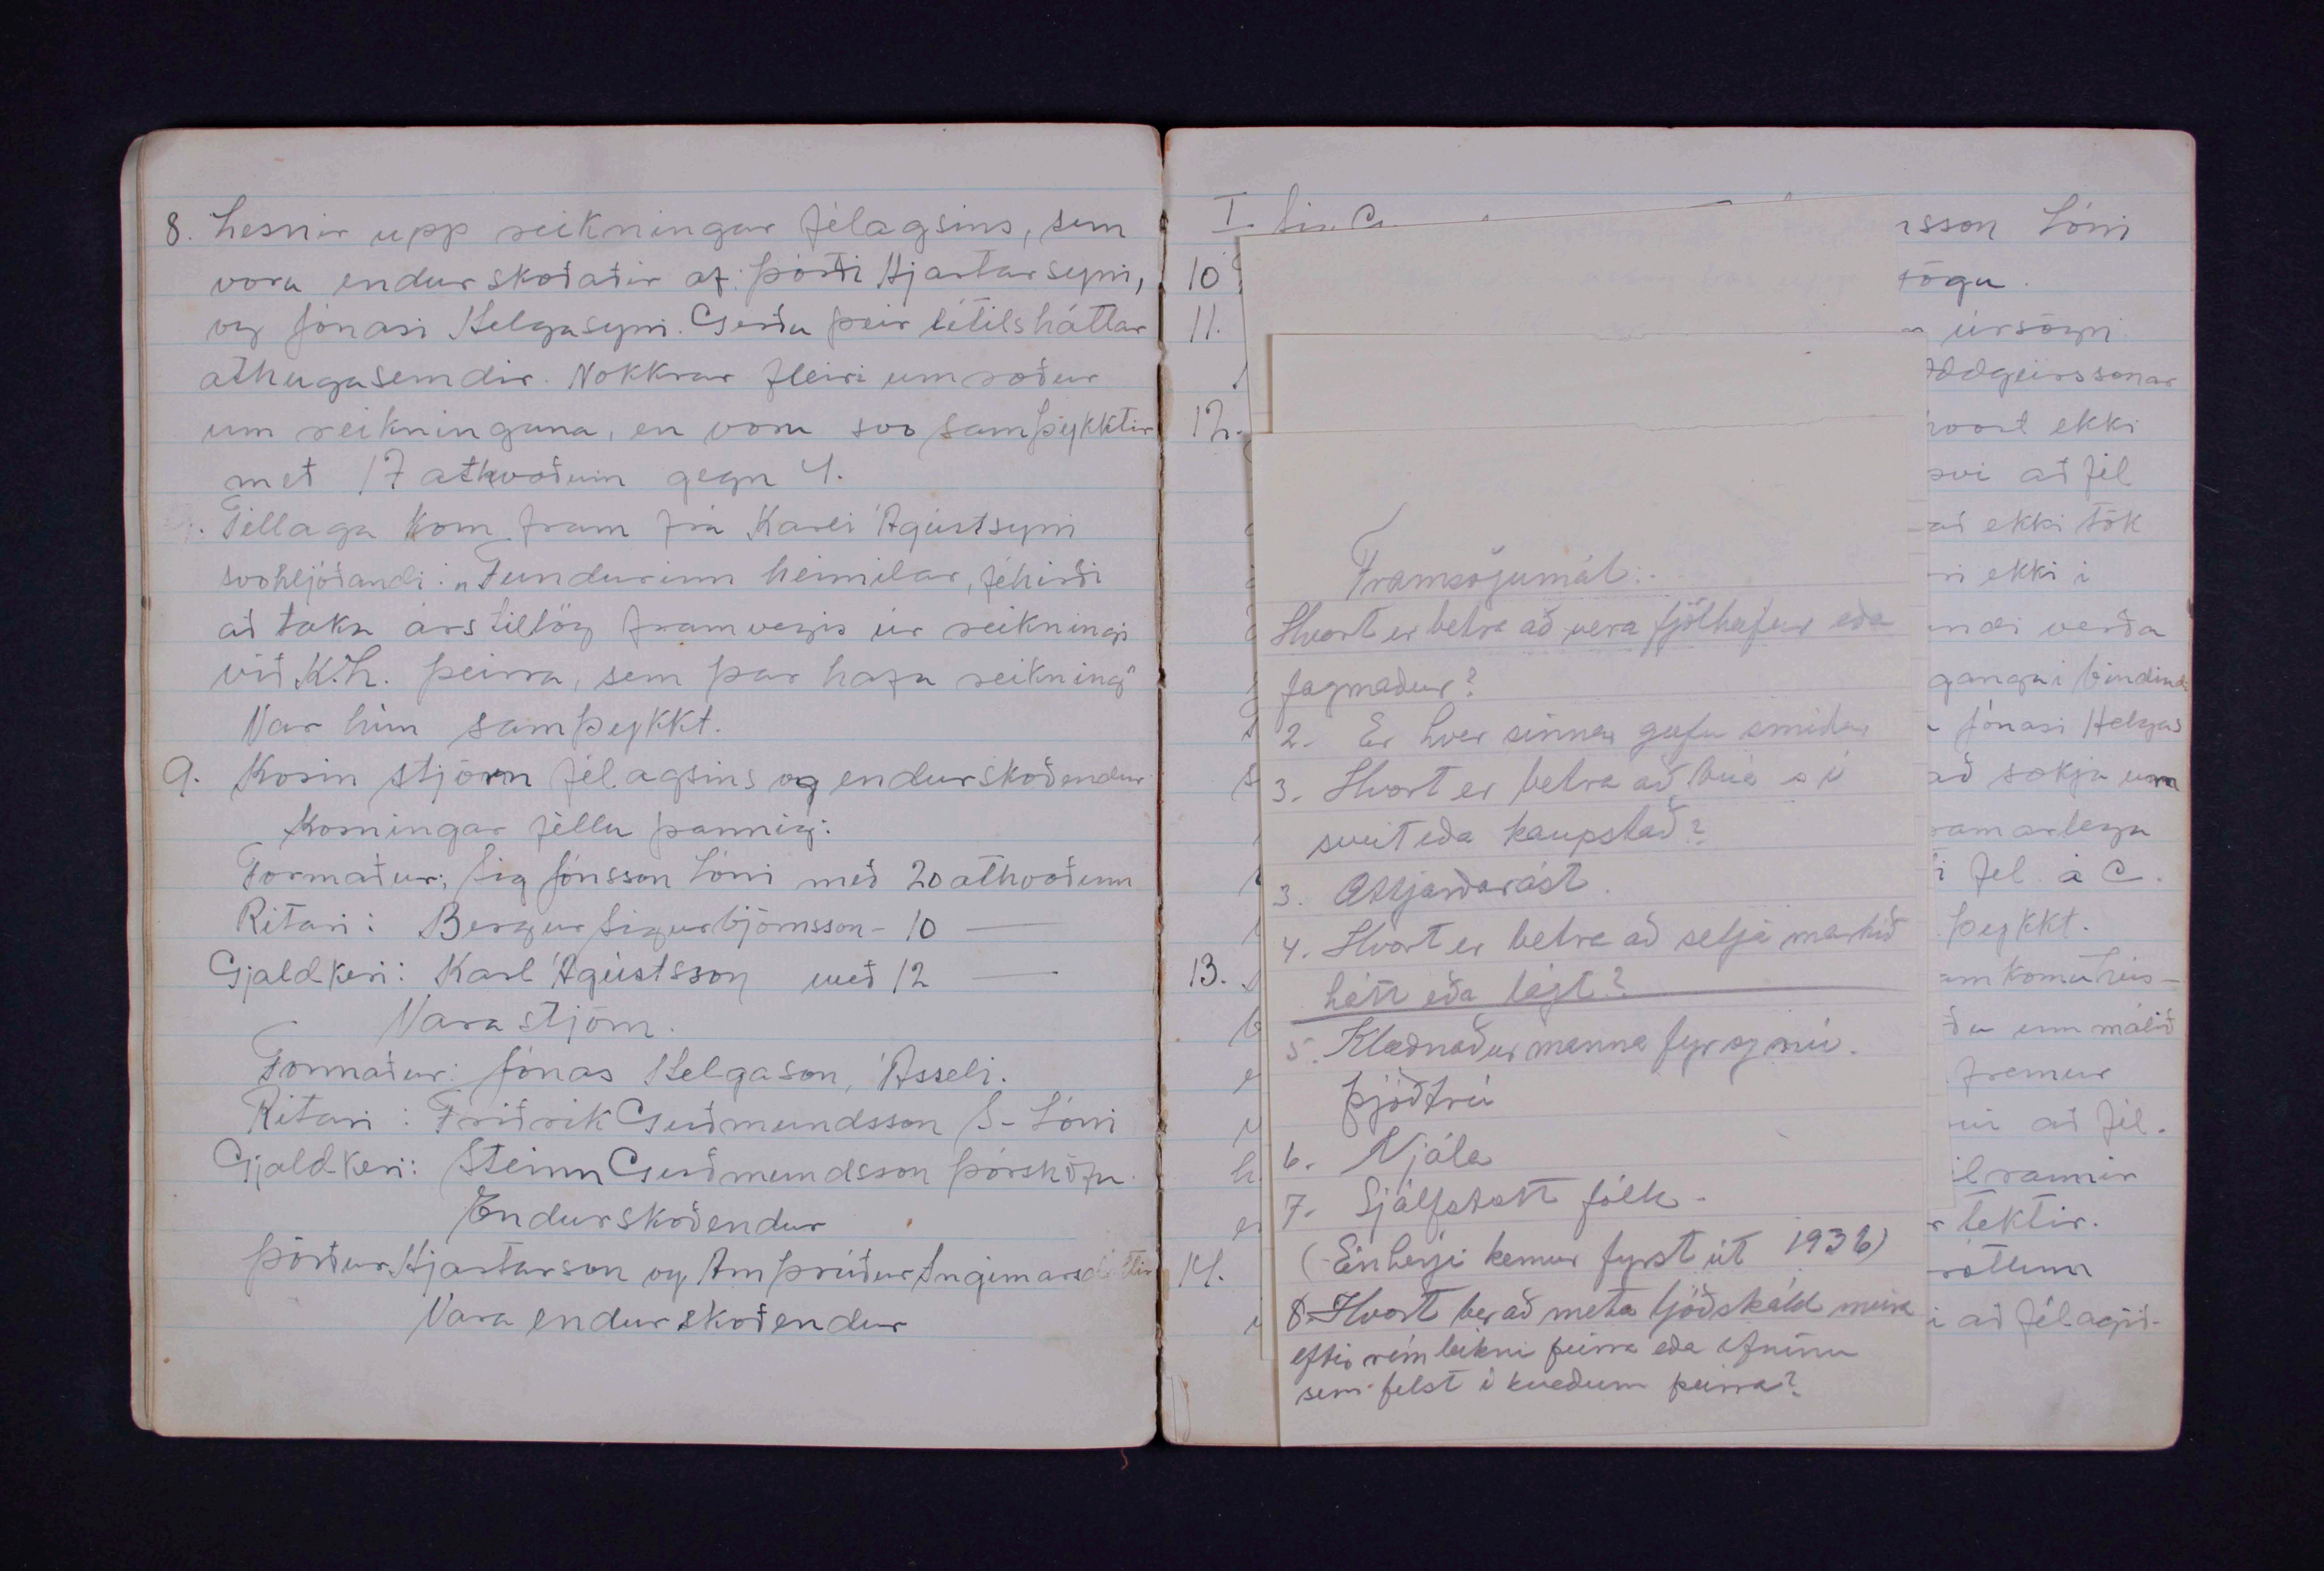 8. Lesnir upp reikningar félagsins, sem
voru endurskoðaðir af: Þórði Hjartarsyni,
og Jónasi Helgasyni. Gerðu þeir lítilsháttar
athugasemdir. Nokkrar fleiri umræður
um reikningana, en voru svo samþykktir
með 17 atkvæðum gegn 4.
Tillaga kom fram frá Karli Ágústsyni
svohljóðandi: „Fundurinn heimilar, féhirði
að taka árstillög framvegis úr reikningi
við K.L. þeirra, sem þar hafa reikning"
Var hún samþykkt.
9. Kosin stjórn félagsins og endurskoðendur
Kosningar féllu þannig:
Formaður: Sig Jónsson Lóni með 20 athvæðum
Ritari: Bergur Sigurbjörnsson - 10 —
Gjaldkeri: Karl Ágústsson með 12 —
Varastjórn.
Formaður: Jónas Helgason, Ásseli.
Ritari: Friðrik Guðmundsson S-Lóni
Gjaldkeri: Steinn Guðmundsson Þórshöfn.
Endurskoðendur
Þórður Hjartarson og Arnþrúður Ingimarsdóttir
Vara endurskoðendur
I.
10
11.
12.
13.
14.
sson Lóni
sögu.
úrsögn
Oddgeirssonar
hvort ekki
því að fél
að ekki tók
ri ekki í
ndi verða
ganga í bindind
Jónasi Helgas
að sækja um
ramarlega
i fél. á C.
þykkt.
amkomuhús-
ðu um málið
fremur
að fél.
ilraunir
tektir.
róttum
i að félagið-
Framsögumál:
Hvort er betra að vera fjölhæfur eða
fagmaður?
2. Er hver sinnar gæfu smiður
3. Hvort er betra að búa í
sveit eða kaupstað?
3. Ættjarðarást.
4. Hvort er betra að setja markið
hátt eða lágt?
5. Klæðnaður manna fyr og nú.
Þjóðtrú
6. Njála
7. Sjálfstætt fólk.
(Einherji kemur fyrst út 1936)
8. Hvort ber að meta ljóðskáld meira
eftir rímleikni þeirra eða efninu
sem felst í kvæðum þeirra?